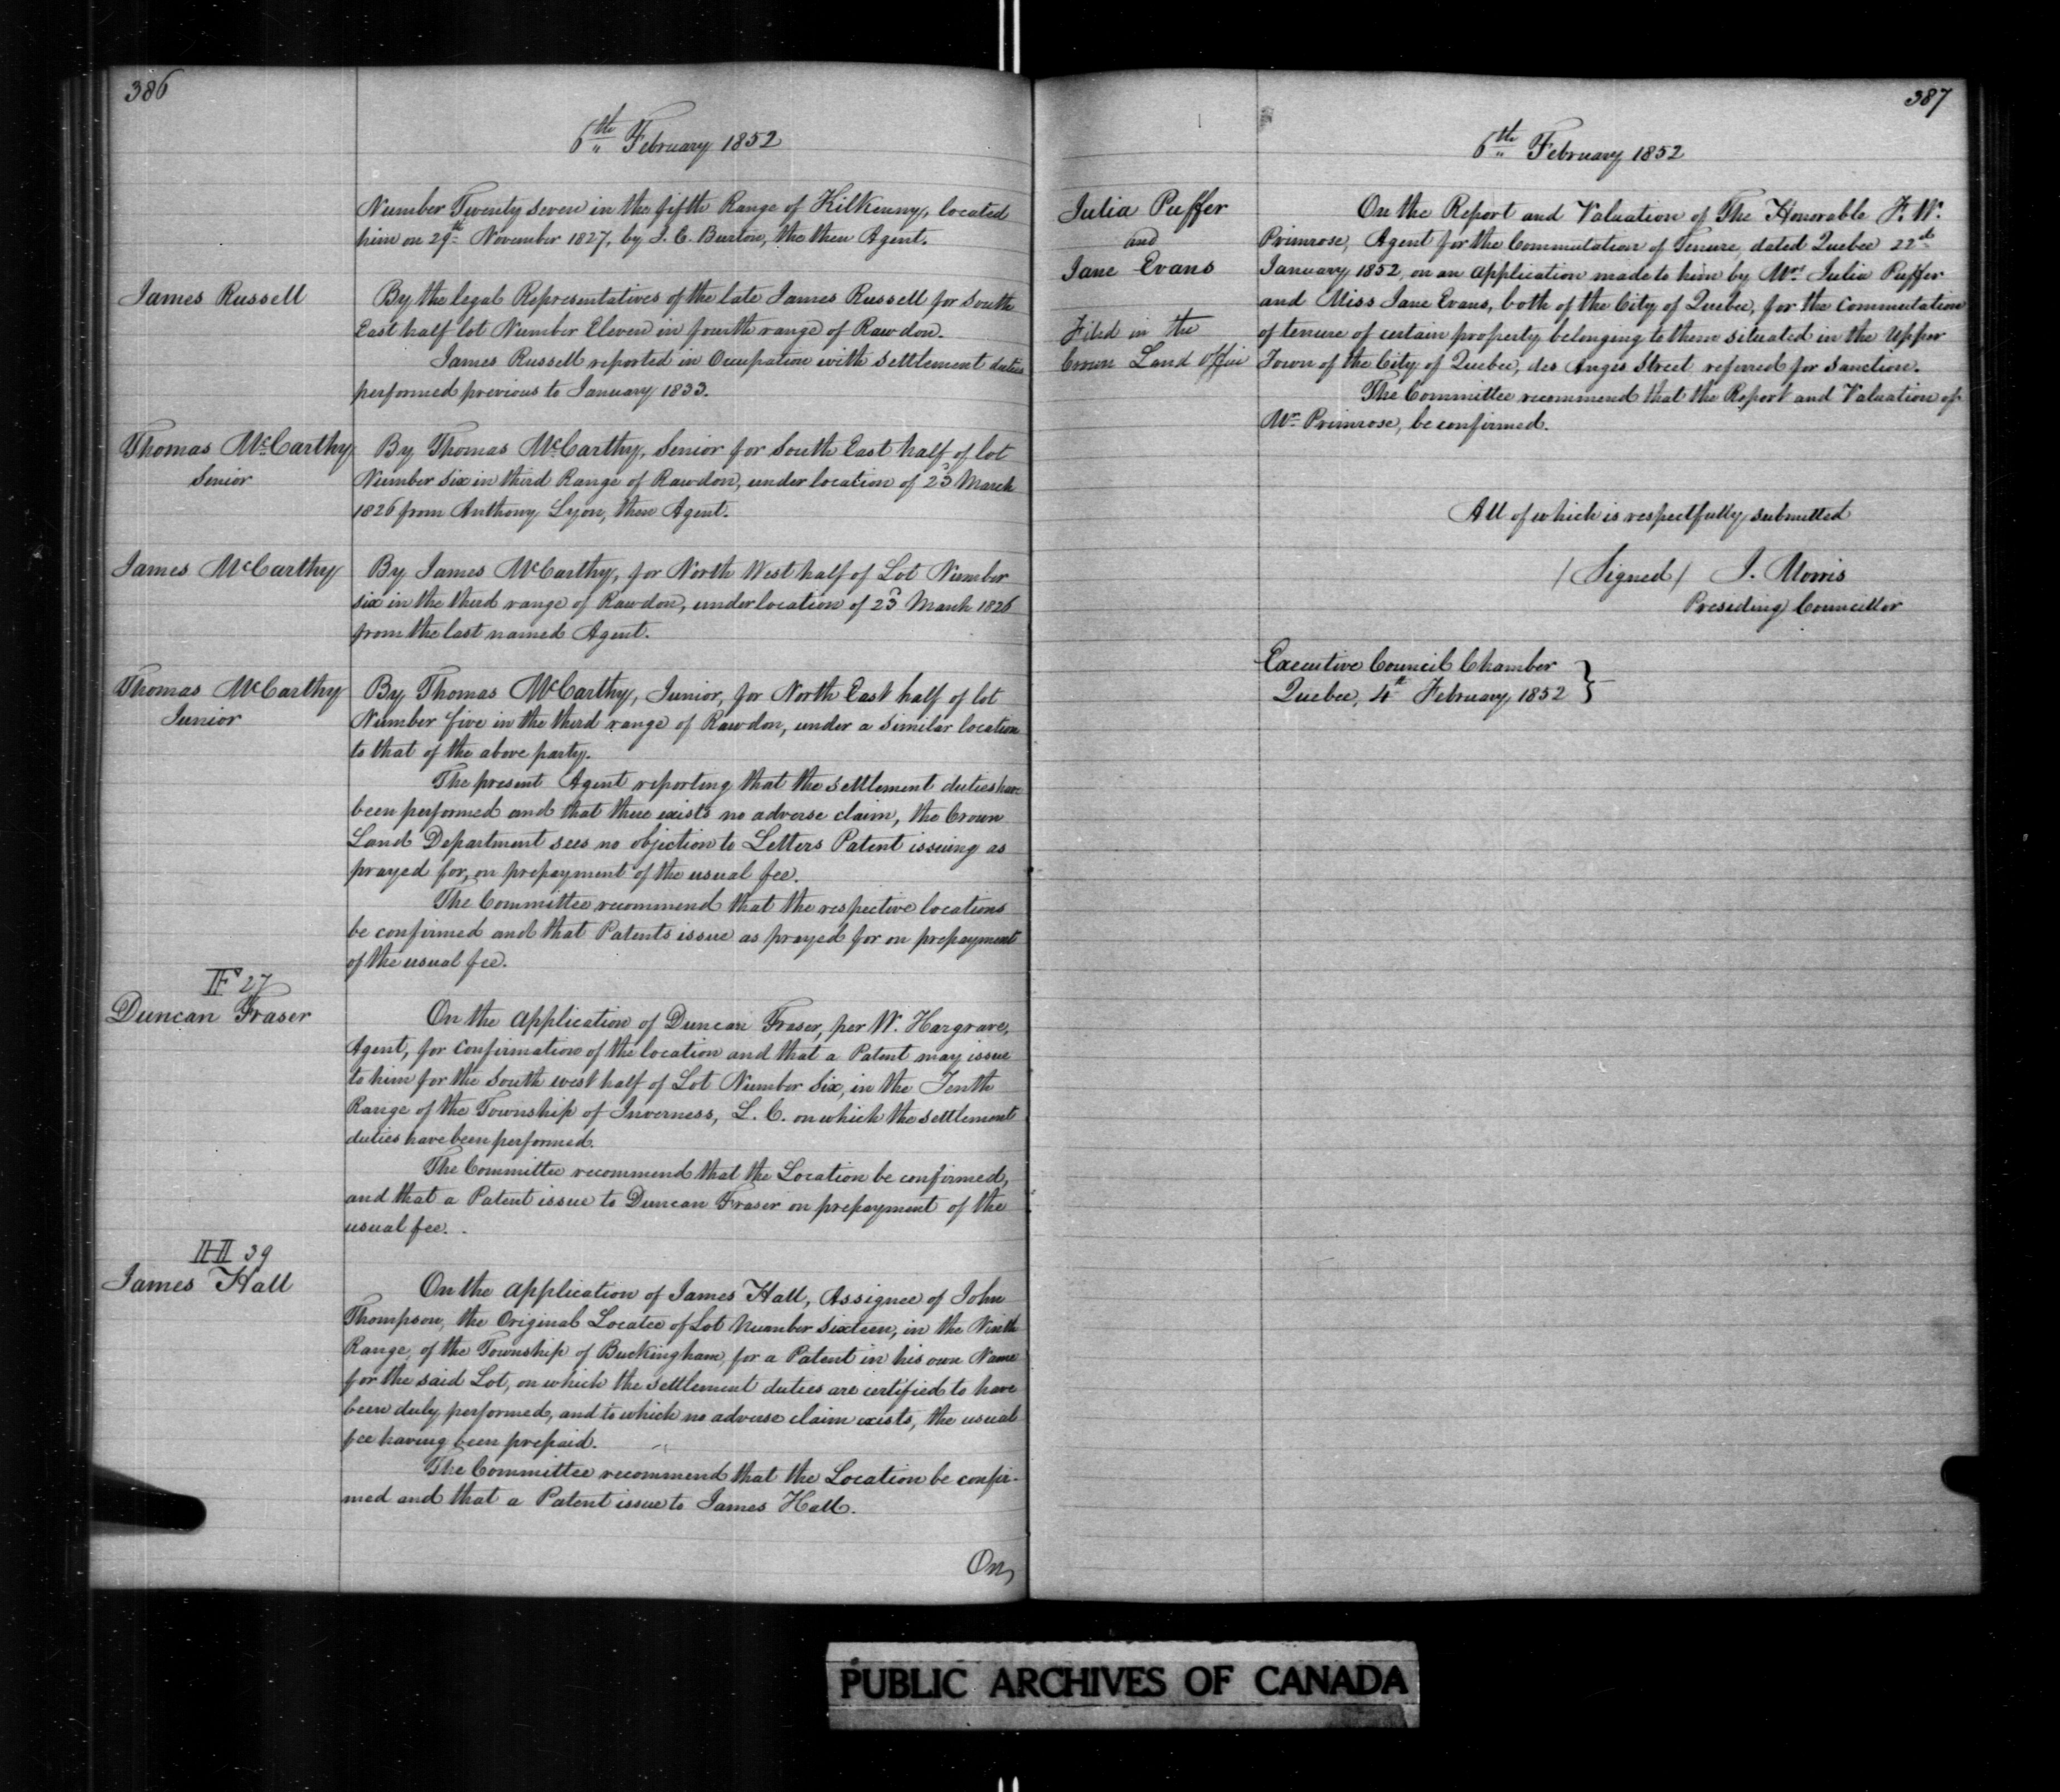 386
6th February 1852
Number Twenty seven in the fifth Range of Kilkenny, located
him on 29th November 1827, by J. C. Burton, the then Agent.
James Russell
By the legal Representatives of the late James Russell for South
East half lot Number Eleven in fourth range of Rawdon.
James Russell reported in Occupation with settlement duties
performed previous to January 1833.
Thomas McCarthy
Senior
By Thomas McCarthy, Senior for South East half of lot
Number six in third Range of Rawdon, under location of 23 March
1826 from Anthony Lyon, then Agent.
James McCarthy
By James McCarthy, for North West half of Lot Number
six in the third range of Rawdon, under location of 23 March 1826
from the last named Agent.
Thomas McCarthy
Junior
By Thomas McCarthy, Junior, for North East half of lot
Number five in the third range of Rawdon, under a similar location
to that of the above party.
The present Agent reporting that the settlement duties have
been performed and that there exists no adverse claim, the Crown
Land Department sees no objection to Letters Patent issuing as
prayed for, on prepayment of the usual fee.
The Committee recommend that the respective locations
be confirmed and that Patents issue as prayed for on prepayment
of the usual fee.
F 27
Duncan Fraser
On the Application of Duncan Fraser, per W. Hargrave,
Agent, for confirmation of the location and that a Patent may issue
to him for the South west half of Lot Number Six, in the Tenth
Range of the Township of Inverness, L. C. on which the settlement
duties have been performed.
The Committee recommend that the Location be confirmed,
and that a Patent issue to Duncan Fraser on prepayment of the
usual fee.
H 39
James Hall
On the Application of James Hall, Assignee of John
Thompson, the Original Locatee of Lot Number Sixteen, in the Ninth
Range, of the Township of Buckingham, for a Patent in his own Name
for the said Lot, on which the settlement duties are certified to have
been duly performed, and to which no adverse claim exists, the usual
fee having been prepaid.
The Committee recommend that the Location be confir-
med and that a Patent issue to James Hall.
On
387
6th February 1852
Julia Puffer
and
Jane Evans
Filed in the
Crown Land Office
On the Report and Valuation of The Honorable F. W.
Primrose, Agent for the Commutation of Tenure, dated Quebec 22d
January 1852, on an application made to him by Mrs Julia Puffer
and Miss Jane Evans, both of the City of Quebec, for the commutation
of tenure of certain property belonging to them situated in the Upper
Town of the City of Quebec, des Anges Street referred for sanction.
The Committee recommend that the Report and Valuation of
Mr Primrose, be confirmed.
All of which is respectfully submitted
(Signed) J. Morris
Presiding Councillor
Executive Council Chamber
Quebec, 4th February 1852
PUBLIC ARCHIVES OF CANADA